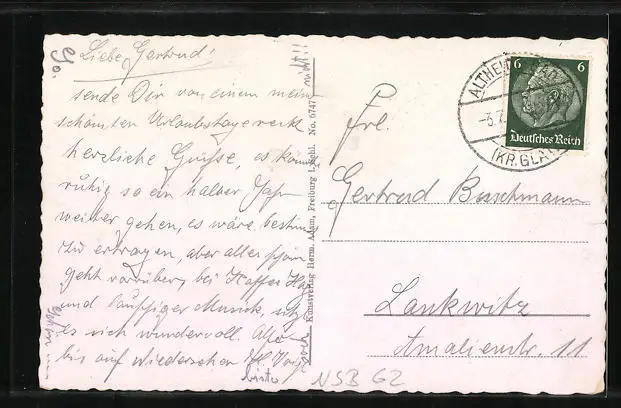 Liebe Gertrud!
sende Dir von einem mein
schönsten Urlaubstage recht
herzliche Grüsse, es könnte
ruhig so ein halbes Jahr
weiter gehen, es wäre bestim
zu ertragen, aber alles schön
geht vorrüber, bei Kaffee Hag
und lauschiger Musick, sitzt
es sich wundervoll. Also
bis auf Wiedersehen
Kunstverlag Herm. Adam, Freiburg i. Schl. No. 6747
Frl.
Gertrud Buschmann
Lankwitz
Amalienstr. 11
6 6
Deutsches Reich
ALTHEI
-3.7.
(KR. GLATZ
NSB 62